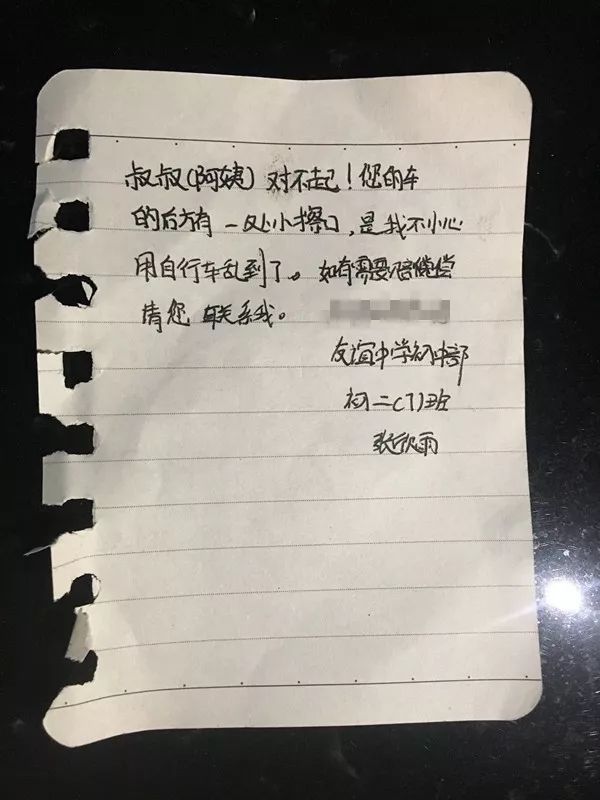 叔叔(阿姨)对不起！您的车
的后方有一处小擦口,是我不小心
用自行车乱到了。如有需要赔偿偿
请您 联关系我。
友谊中学初中部
初二(7)班
张欣雨